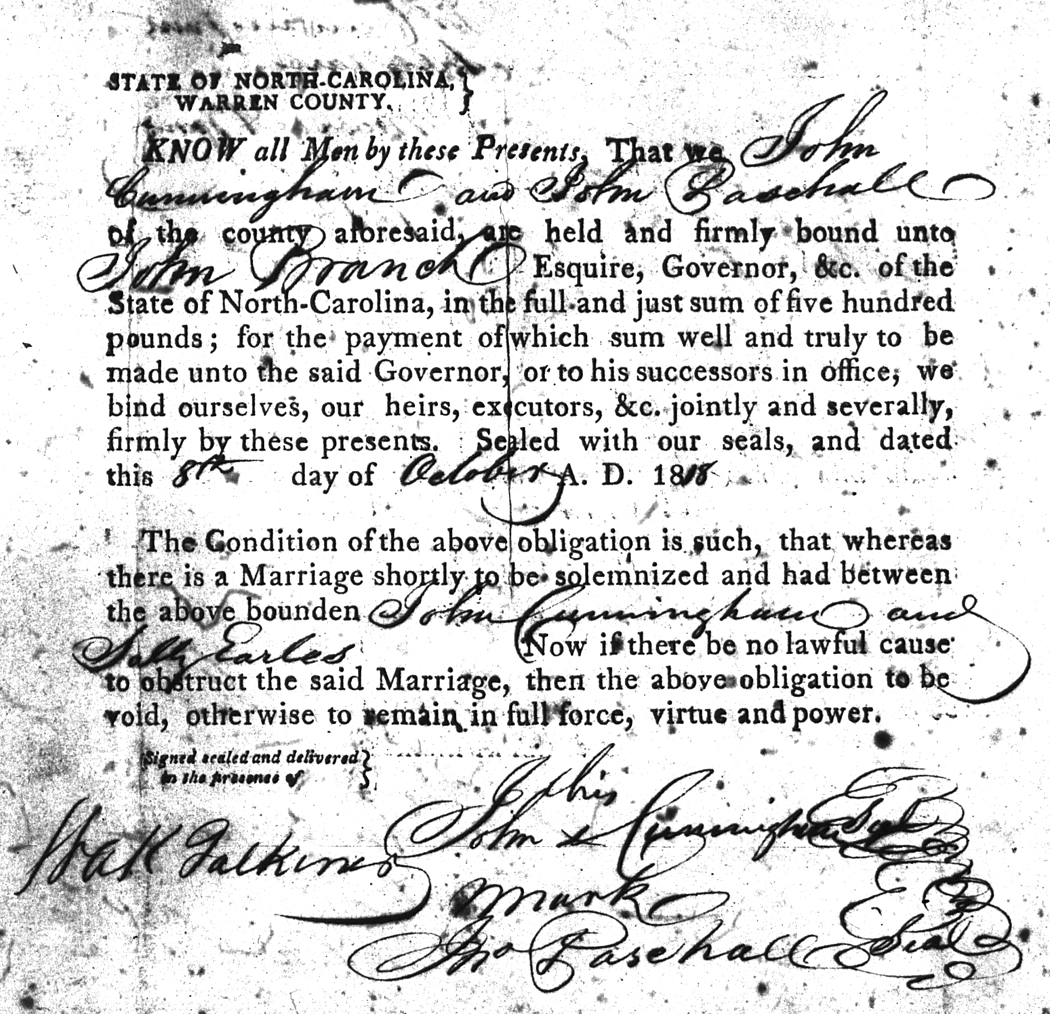 STATE OF NORTH-CAROLINA,
WARREN COUNTY.
KNOW all Men by these Presents, That we John
Cunningham and John Paschall
of the county aforesaid, are held and firmly bound unto
John Branch Esquire, Governor, &c. of the
State of North-Carolina, in the full and just sum of five hundred
pounds; for the payment of which sum well and truly to be
made unto the said Governor, or to his successors in office, we
bind ourselves, our heirs, executors, &c. jointly and severally,
firmly by these presents. Sealed with our seals, and dated
this 8th day of October A. D. 1818
The Condition of the above obligation is such, that whereas
there is a Marriage shortly to be solemnized and had between
the above bounden John Cunningham and
Sally Earles Now if there be no lawful cause
to obstruct the said Marriage, then the above obligation to be
void, otherwise to remain in full force, virtue and power.
Signed sealed and delivered
in the presence of
his
John x Cunningham Seal
mark
Jno Paschall Seal